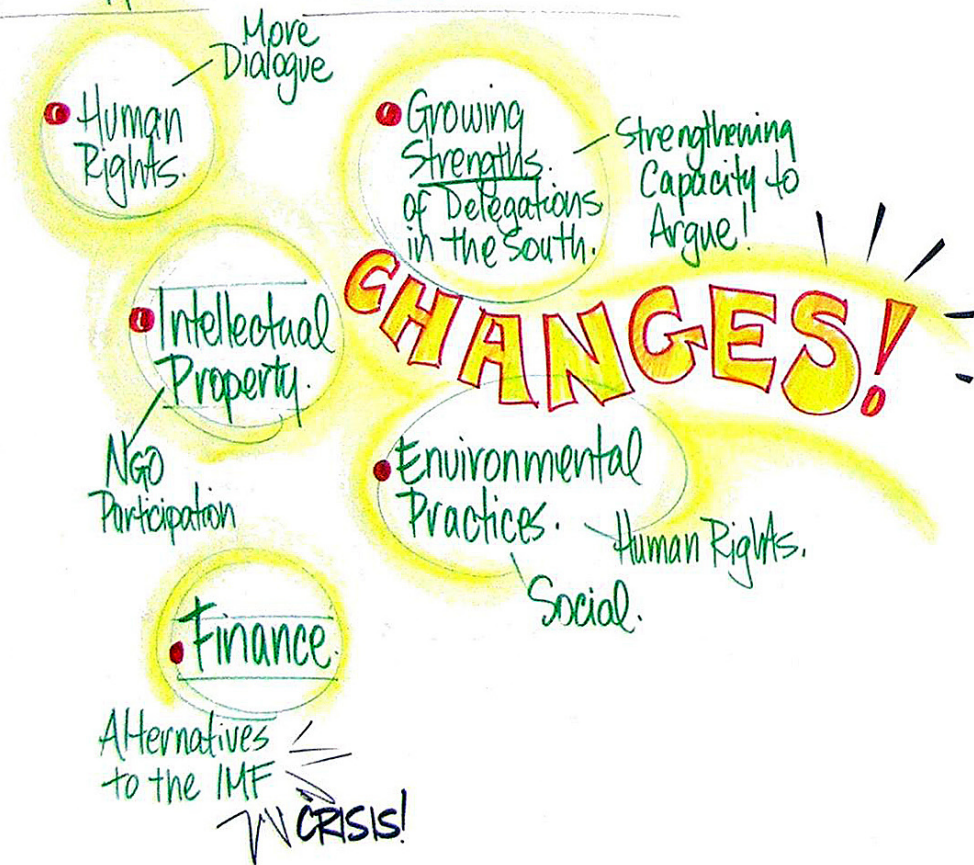 More
Dialogue
Human
Rights.
Growing
Strengths.
of Delegations
in the South.
Strengthening
Capacity to
Argue!
CHANGES!
Intellectual
Property.
NGO
Participation
Environmental
Practices.
Human Rights.
Social.
Finance.
Alternatives
to the IMF
CRISIS!